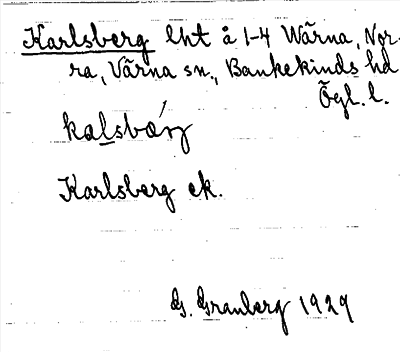 Karlsberg lht å 1-4 Wärna, Nor-
ra, Värna sn., Bankekinds hd
Ögl. l.
Karlsberg ek.
G. Granberg 1929